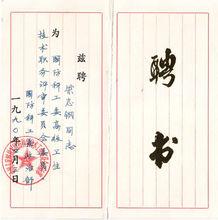 聘书
兹聘
同志
为
国防科工委高
技术职务评审委员会委员
国防科工委政治部
一九九〇年